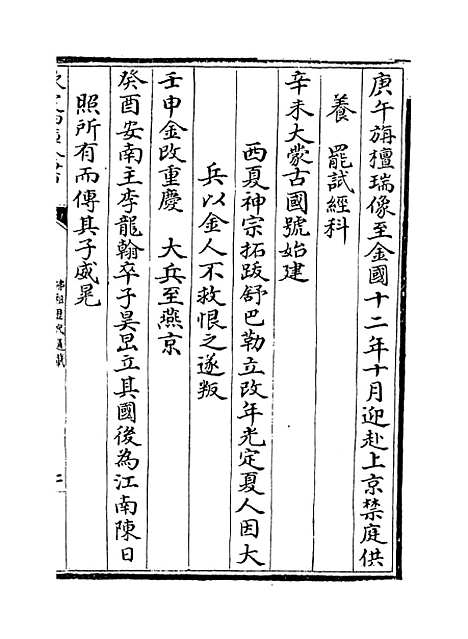 庚午旃檀瑞像至金國十二年十月迎赴上京禁庭供
養　罷試經科
辛未大蒙古國號始建
西夏神宗拓跋舒巴勒立改年光定夏人因大
兵以金人不救恨之遂叛
壬申金改重慶　大兵至燕京
癸酉安南主李龍翰卒子昊旵立其國後為江南陳日
照所有而傳其子威晃
佛祖歷代通載